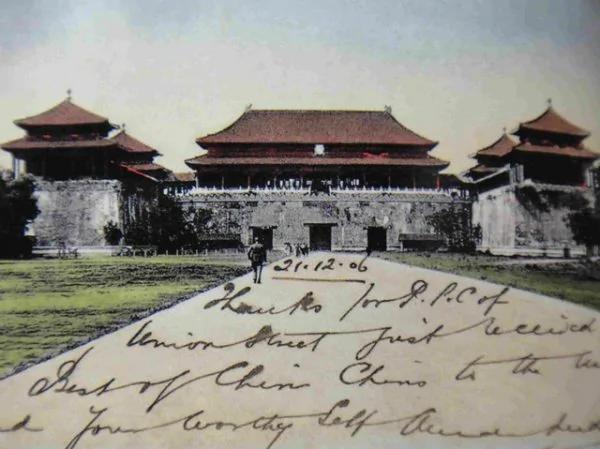 21.12.06
Thanks for P.P.C of
Union Street just received
Best of Chin Chins to the
Your worthy Self